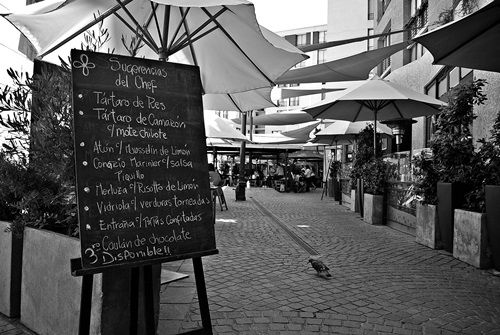 Sugerencias
del Chef
Tártaro de Res
Tártaro de Camarón
c/mote chilote
Atún c/ de Limón
Congrio Marinier c/salsa
Merluza c/Risotto de Limón
Vidriola c/ verduras torneadas
Entraña c/ Papas Confitadas
Coulán de chocolate
Disponible!!